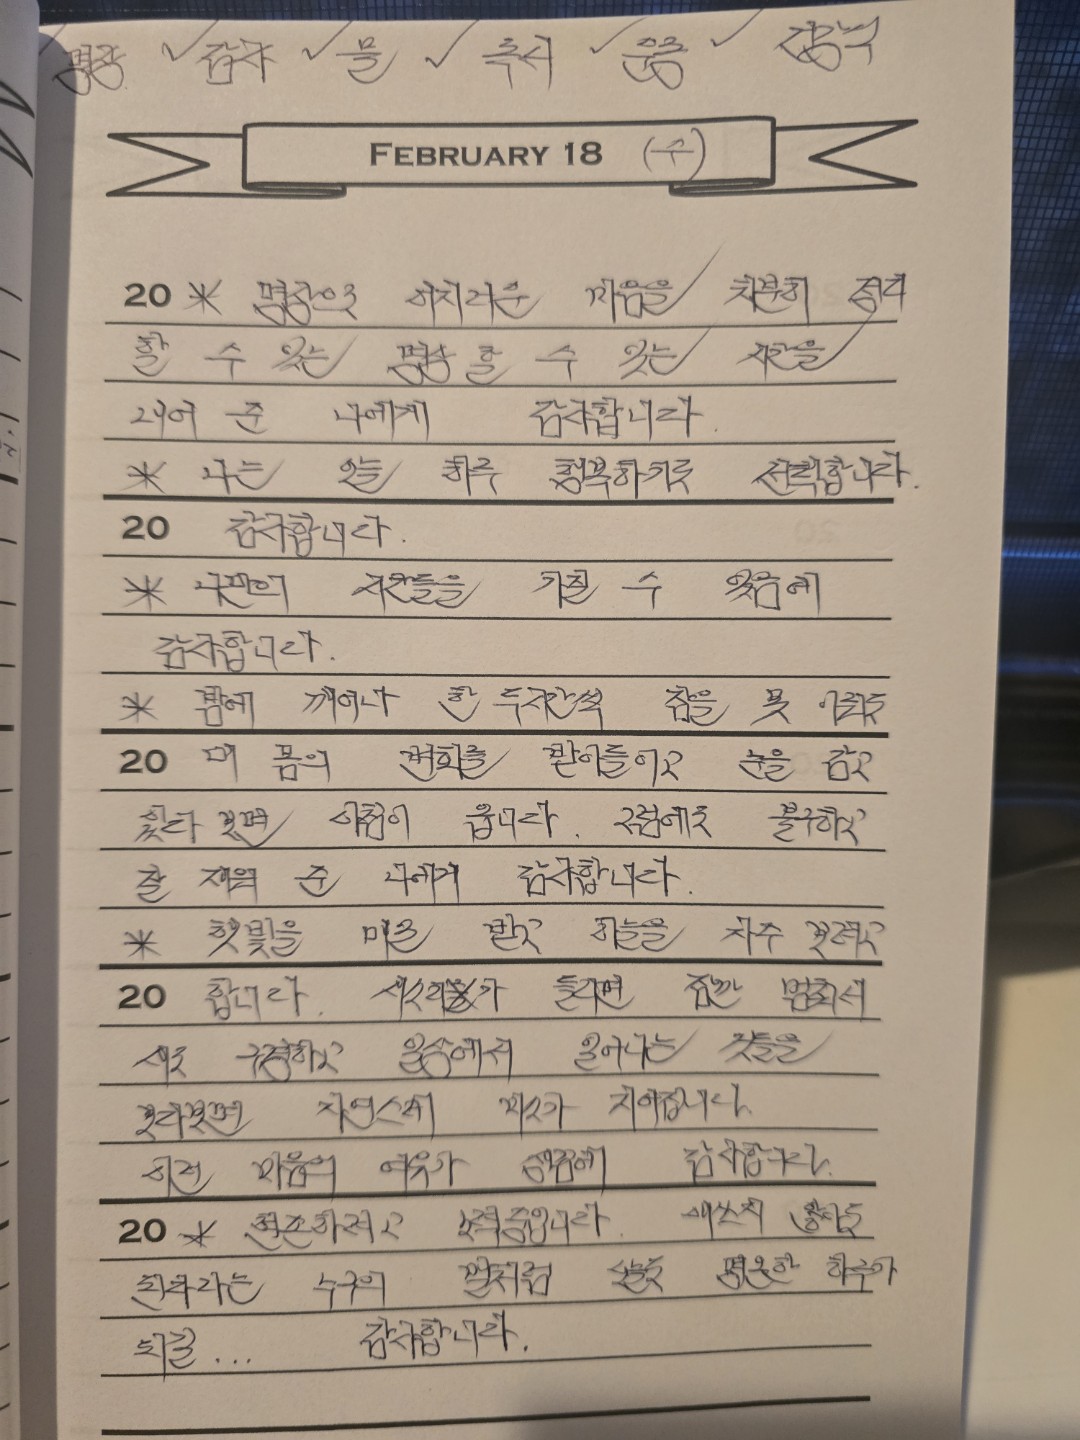 명상 ✓ 감사 ✓ 물 ✓ 독서 ✓ 운동 ✓
FEBRUARY 18 (수)
20 * 명상으로 어지러운 마음을 차분히 정리
할 수 있는 명상 할 수 있는 시간을
내어 준 나에게 감사합니다.
* 나는 오늘 하루 행복하기로 선택합니다.
20 감사합니다.
* 나만의 시간들을 가질 수 있음에
감사합니다.
* 밤에 깨어나 한 두시간씩 잠을 못 이뤄도
20 내 몸의 변화를 받아들이고 눈을 감고
있다 보면 아침이 옵니다. 그럼에도 불구하고
잘 자 준 나에게 감사합니다.
* 햇빛을 매일 받고 하늘을 자주 보려고
20 합니다. 새소리가 들리면 잠깐 멈춰서
새도 구경하고 일상에서 일어나는 것들을
보다보면 자연스레 미소가 지어집니다.
이런 마음의 여유가 생김에 감사합니다.
20 * 현존하려고 노력중입니다. 애쓰지 않아도
된다라는 누구의 말처럼 오늘도 평온한 하루가
되길... 감사합니다.